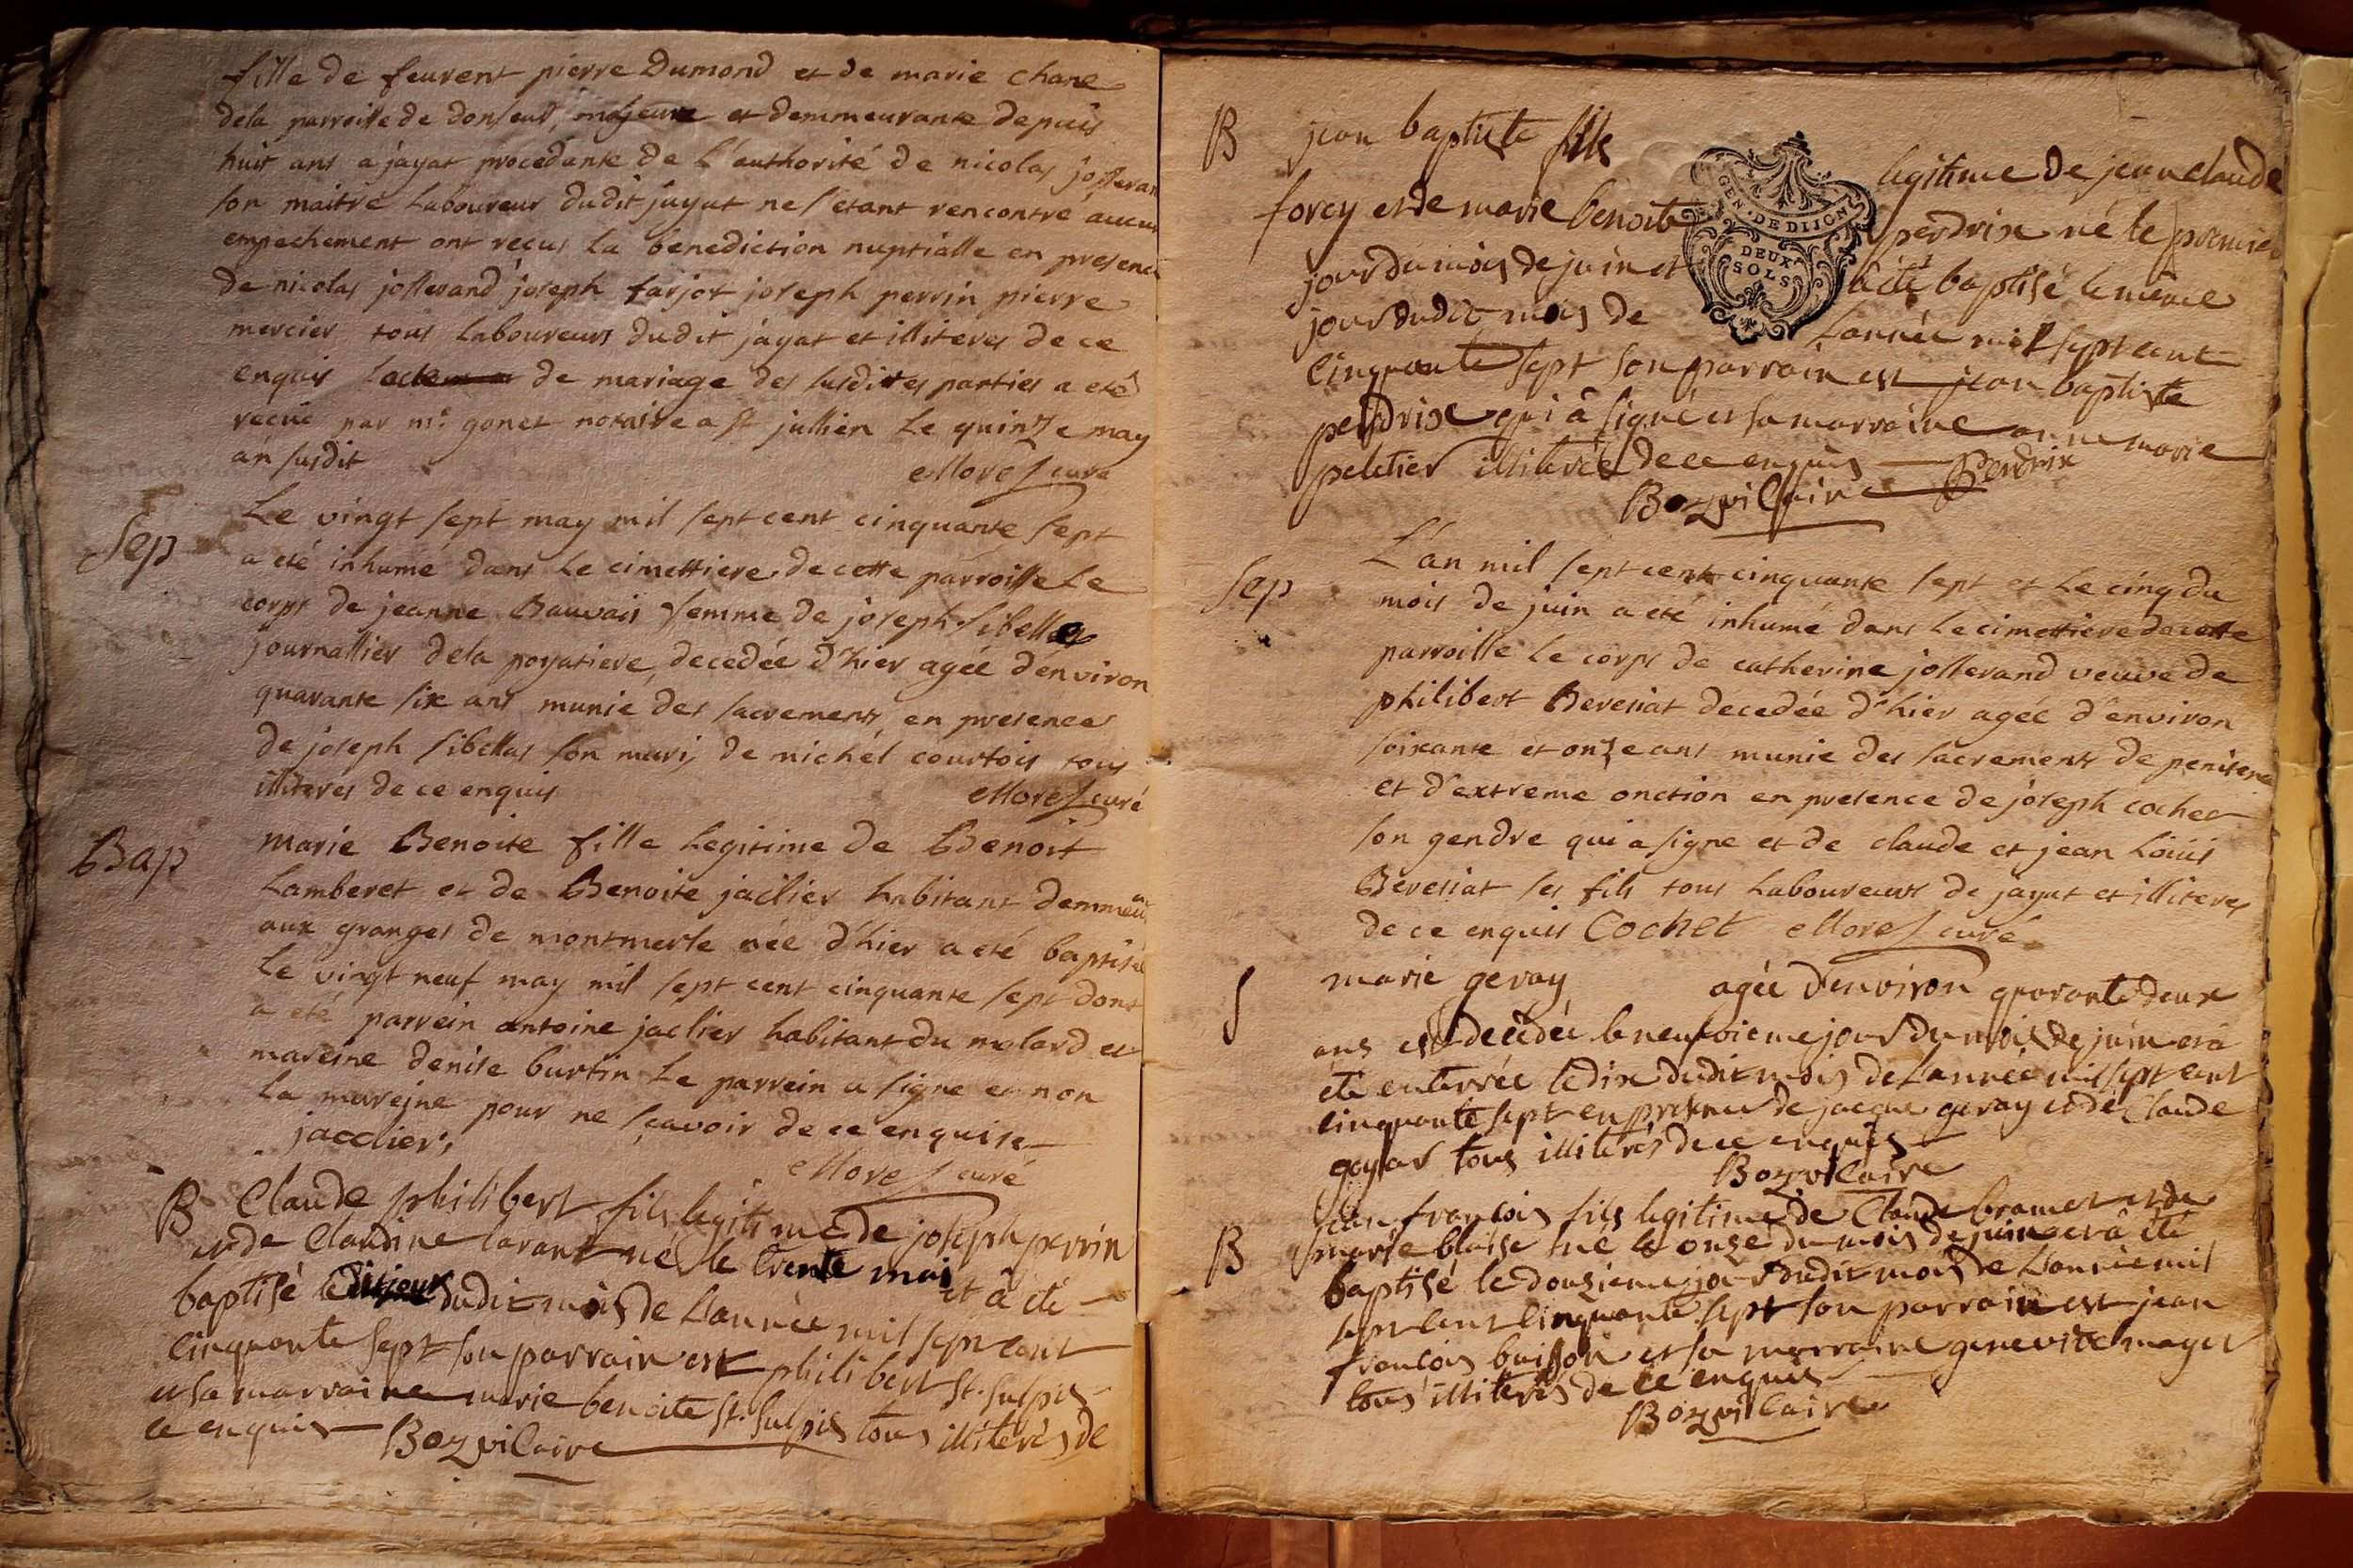 fille de feurent pierre Dumond et de marie chare
dela parroisse de donseur, majeure et demmeurante depuis
huit ans a jayat procedante de l'authorité de nicolas josseran
son maitre Laboureur dudit jayat ne s'etant rencontré aucun
empechement ont recus la benediction nuptialle en presence
de nicolas josserand joseph farjot joseph perrin pierre
mercier tous Laboureurs dudit jayat et illiteres de ce
enquis de mariage des susdittes parties a eté
recüe par me. gonet notaire a st jullien Le quinze may
an susdit Morel curé
Sep
Le vingt sept may mil sept cent cinquante sept
a eté inhumé dans Le cimettiere de cette parroisse Le
corps de jeanne Bauvais femme de joseph sibellas
journallier dela poyatiere, decedée d'hier agée d'environ
quarante six ans munie des sacrements en presence
de joseph sibellas son mari, de michél courtois tous
illiterés de ce enquis Morel curé
Bap
marie Benoite fille Legitime de Benoit
Lamberet et de Benoite jaclier habitant demmeu
aux granges de montmerle née d'hier a eté baptisée
Le vingt neuf may mil sept cent cinquante sept dont
a eté parrein antoine jaclier habitant du molard et
mareine denise burtin Le parrein a signe et non
La mareine pour ne sçavoir de ce enquise
jacclier,
Morel curé
B Claude philibert fils legitime de joseph perrin
et de Claudine lavant né le trente mai et à été
baptisé le dudit mois de L'année mil sept cent
cinquante sept son parrain est philibert St. Sulpis
et sa marraine marie benoite St. Sulpis tous illiterés de
ce enquis Boz vicaire
B jean baptiste fils legitime de jean claude
forey et de marie benoite perdrix né le premier
jour du mois de juin et à été baptisé le même
jour dudit mois de L'année mil sept cent
cinquante sept son parrain est jean baptiste
perdrix qui à signé et sa marraine anne marie
peletier illiterée de ce enquis Perdrix
Boz vicaire
GEN. DE DIJON
DEUX
SOLS
Sep
L'an mil sept cent cinquante sept et Le cinq du
mois de juin a eté inhumé dans Le cimettiere de cette
parroisse Le corps de catherine josserand veuve de
philibert Beresiat decedée d'hier agée d'environ
soixante et onze ans munie des sacrements de penitence
et d'extreme onction en presence de joseph cochet
son gendre qui a signe et de claude et jean Loüis
Beresiat ses fils tous Laboureurs de jayat et illiteres
de ce enquis Cochet Morel curé
S
marie geray agée d'environ quarante deux
ans est decedée le neufvieme jour du mois de juin et à
été enterrée le dix dudit mois de L'année mil sept cent
cinquante sept en presence de jacque geray et de Claude
goyar tous illiterés de ce enquis
Boz vicaire
B
jean françois fils legitime de Claude bramet et de
marie blaise né le onze du mois de juin et à été
baptisé le douzieme jour dudit mois de L'année mil
sept cent cinquante sept son parrain est jean
françois buisson et sa marraine genevieve mayet
tous illiterés de ce enquis
Boz vicaire